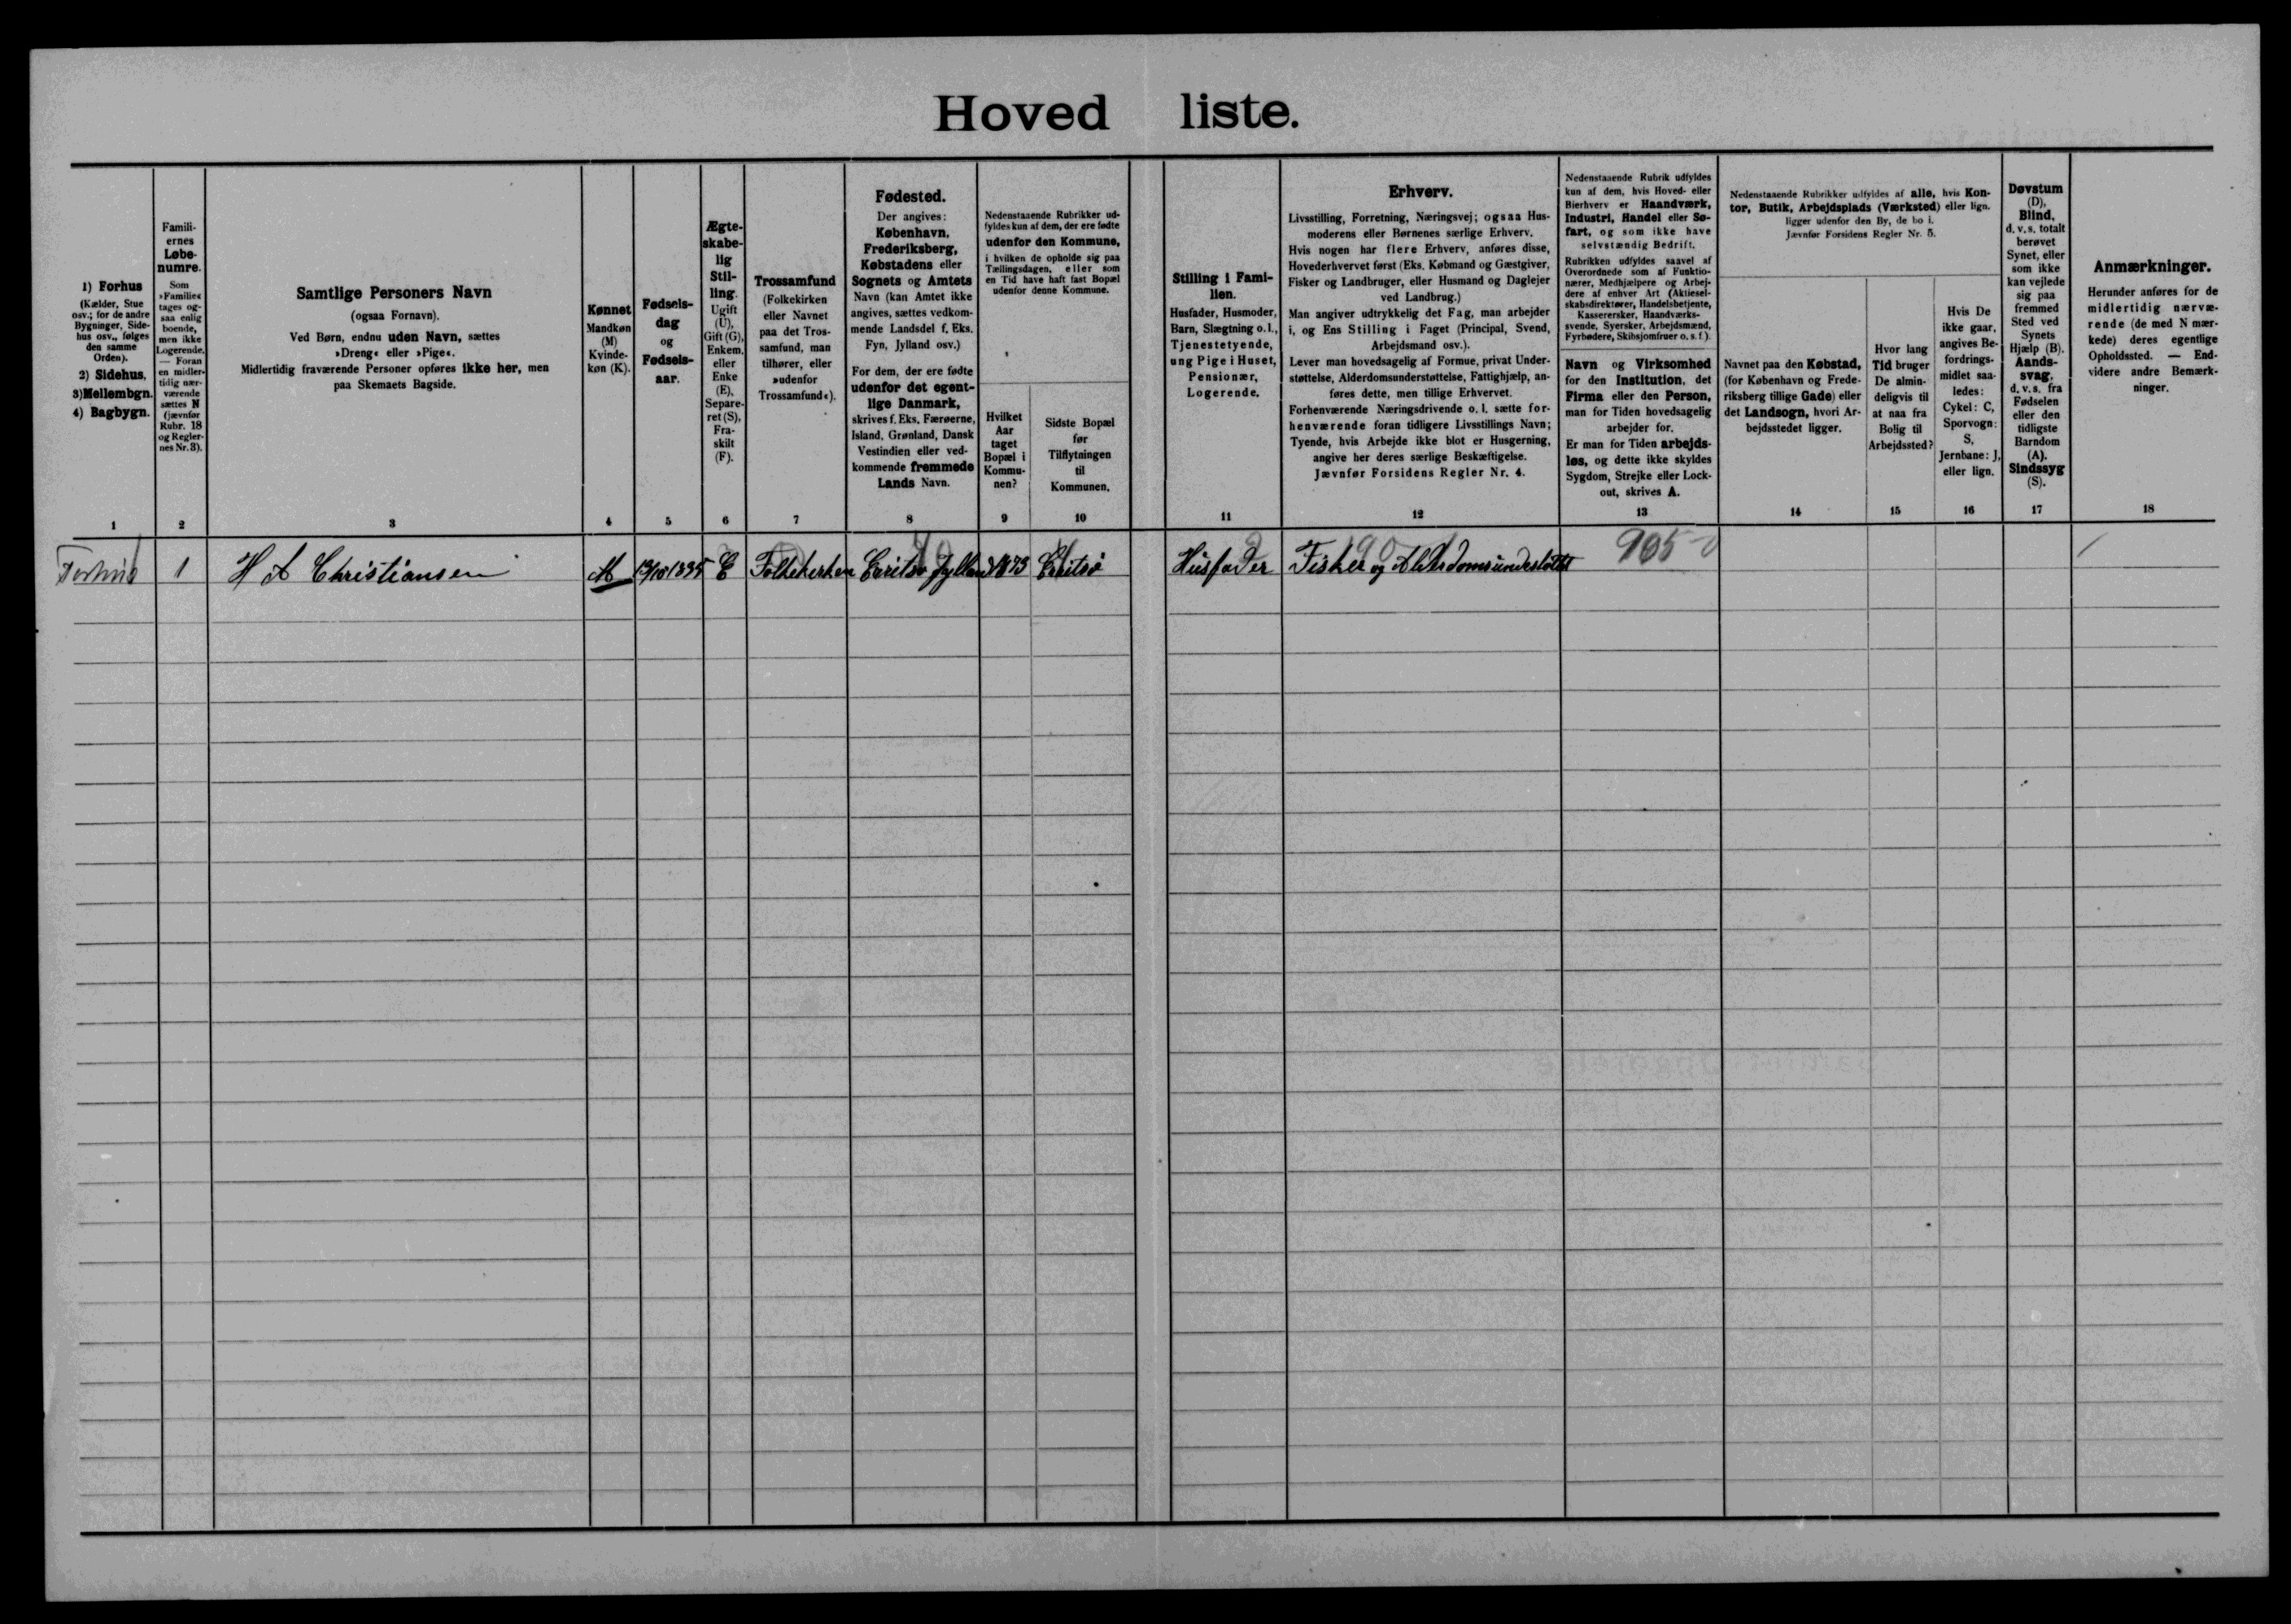 Hoved liste.
1) Forhus
(Kælder, Stue
osv.; for de andre
Bygninger, Side-
hus osv., følges
den samme
Orden).
2) Sidehus,
3) Mellembgn.
4) Bagbygn.
1
Famili-
ernes
Løbe-
numre.
Som
»Familie«
tages og-
saa enlig
boende,
men ikke
Logerende.
— Foran
en midler-
tidig nær-
værende
sættes N
(jævnfør
Rubr. 18
og Regler-
nes Nr. 3).
2
Samtlige Personers Navn
(ogsaa Fornavn).
Ved Børn, endnu uden Navn, sættes
»Dreng« eller »Pige«.
Midlertidig fraværende Personer opføres ikke her, men
paa Skemaets Bagside.
3
Kønnet
Mandkøn
(M)
Kvinde-
køn (K).
4
Fødsels-
dag
og
Fødsels-
aar.
5
Ægte-
skabe-
lig
Stil-
ling.
Ugift
(U),
Gift (G),
Enkem.
eller
Enke
(E),
Separe-
ret (S),
Fra-
skilt
(F).
6
Trossamfund
(Folkekirken
eller Navnet
paa det Tros-
samfund, man
tilhører, eller
»udenfor
Trossamfund«).
7
Fødested.
Der angives:
København,
Frederiksberg,
Købstadens eller
Sognets og Amtets
Navn (kan Amtet ikke
angives, sættes vedkom-
mende Landsdel f. Eks.
Fyn, Jylland osv.)
For dem, der ere fødte
udenfor det egent-
lige Danmark,
skrives f. Eks. Færøerne,
Island, Grønland, Dansk
Vestindien eller ved-
kommende fremmede
Lands Navn.
8
Nedenstaaende Rubrikker ud-
fyldes kun af dem, der ere fødte
udenfor den Kommune,
i hvilken de opholde sig paa
Tællingsdagen, eller som
en Tid have haft fast Bopæl
udenfor denne Kommune.
Hvilket
Aar
taget
Bopæl i
Kommu-
nen?
9
Sidste Bopæl
før
Tilflytningen
til
Kommunen.
10
Stilling i Fami-
lien.
Husfader, Husmoder,
Barn, Slægtning o. l.,
Tjenestetyende,
ung Pige i Huset,
Pensionær,
Logerende.
11
Erhverv.
Livsstilling, Forretning, Næringsvej; ogsaa Hus-
moderens eller Børnenes særlige Erhverv.
Hvis nogen har flere Erhverv, anføres disse,
Hovederhvervet først (Eks. Købmand og Gæstgiver,
Fisker og Landbruger, eller Husmand og Daglejer
ved Landbrug.)
Man angiver udtrykkelig det Fag, man arbejder
i, og Ens Stilling i Faget (Principal, Svend,
Arbejdsmand osv.).
Lever man hovedsagelig af Formue, privat Under-
støttelse, Alderdomsunderstøttelse, Fattighjælp, an-
føres dette, men tillige Erhvervet.
Forhenværende Næringsdrivende o. l. sætte for-
henværende foran tidligere Livsstillings Navn;
Tyende, hvis Arbejde ikke blot er Husgerning,
angive her deres særlige Beskæftigelse.
Jævnfør Forsidens Regler Nr. 4.
12
Nedenstaaende Rubrik udfyldes
kun af dem, hvis Hoved- eller
Bierhverv er Haandværk,
Industri, Handel eller Sø-
fart, og som ikke have
selvstændig Bedrift.
Rubrikken udfyldes saavel af
Overordnede som af Funktio-
nærer, Medhjælpere og Arbej-
dere af enhver Art (Aktiesel-
skabsdirektører, Handelsbetjente,
Kassererske, Haandværks-
svende, Syersker, Arbejdsmænd,
Fyrbødere, Skibsjomfruer o. s. f.).
Navn og Virksomhed
for den Institution, det
Firma eller den Person,
man for Tiden hovedsagelig
arbejder for.
Er man for Tiden arbejds-
løs, og dette ikke skyldes
Sygdom, Strejke eller Lock-
out, skrives A.
13
Nedenstaaende Rubrikker udfyldes af alle, hvis Kon-
tor, Butik, Arbejdsplads (Værksted) eller lign.
ligger udenfor den By, de bo i.
Jævnfør Forsidens Regler Nr. 5.
Navnet paa den Købstad,
(for København og Frede-
riksberg tillige Gade) eller
det Landsogn, hvori Ar-
bejdsstedet ligger.
14
Hvor lang
Tid bruger
De almin-
deligvis til
at naa fra
Bolig til
Arbejdssted?
15
Hvis De
ikke gaar,
angives Be-
fordrings-
midlet saa-
ledes:
Cykel: C,
Sporvogn:
S,
Jernbane: J,
eller lign.
16
Døvstum
(D),
Blind,
d. v. s. totalt
berøvet
Synet, eller
som ikke
kan vejlede
sig paa
fremmed
Sted ved
Synets
Hjælp (B).
Aands-
svag,
d. v. s. fra
Fødselen
eller den
tidligste
Barndom
(A).
Sindssyg
(S).
17
Anmærkninger.
Herunder anføres for de
midlertidig nærvæ-
rende (de med N mær-
kede) deres egentlige
Opholdssted. — End-
videre andre Bemærk-
ninger.
18
Forhus 1 H A Christiansen M E Folkekirken Erritsø Jylland 1873 Erritsø Husfader Fisker og 905